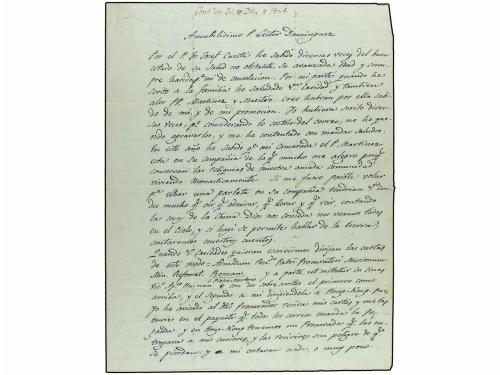 Amabilisimo P. Lector Dominguez
Por el P. Fr. Josef Cuesta he sabido diversas veces del buen
estado de su salud no obstante su avanzada edad y siem
pre ha sido pª mi de consolacion. Por mi parte quando he
scrito a la familia he saludado Vª Caridad, y tambien
alos PP. Martinez y Creo habran por ella sabi
do de mi, y de mi promocion. Yo hubiera scrito diver
sas veces, pº considerando lo costoso del correo, no he que
rido agravarlos, y me he contentado con mandar saludos.
En este año he sabido qª mi camarada el P. Martinez
esta en su compañia de lo qª mucho me alegro porqª
conservan las reliquias de nuestra amada comunidad
viviendo Monasticamente. Si me fuese posible volar
pª echar una parlata en su compañia tendrian Vª Cari
des mucho qª oir, qª admirar, qª llorar y qª reir, contando
las cosas de la China. Dios nos conceda nos veamos todos
en el Cielo, y si hayi se permite hablar de la tierra,
contaremos nuestros cuentos.
Quando Vª Caridades quieran escrivirme dirijan las cartas
de este modo = Admodum Rev. Patri Procuratori Missionum
Min. Reformat. Romam, y a parte ut mittatur in Sinas
son dos sobrescritos el primero como
arriba, y el segundo a mi dirigiendola a Hong-Kong, pª
Yo he avisado al Procurador reciva mis cartas y me las
envie en el paquete qª todos los correos manda la Pro
paganda y en Hong-Kong tenemos un Procurador qª las en
tregara a mis curiores, y las recivire sin peligro de qª
se pierdan, y a mi costaran nada, o muy poco